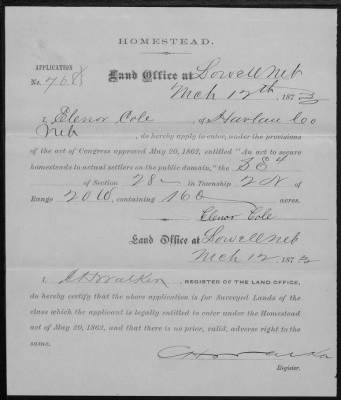 HOMESTEAD.
APPLICATION
No. 768
Land Office at Lowell Neb
Mch 12th, 1873
I, Elenor Cole, of Harlan Co
Neb, do hereby apply to enter, under the provisions
of the act of Congress approved May 20, 1862, entitled "An act to secure
homesteads to actual settlers on the public domain," the SE 4
of Section 28 in Township 2 N of
Range 20 W, containing 160 acres.
Elenor Cole
Land Office at Lowell Neb
Mch 12, 1873
I, C H Walker, REGISTER OF THE LAND OFFICE,
do hereby certify that the above application is for Surveyed Lands of the
class which the applicant is legally entitled to enter under the Homestead
act of May 20, 1862, and that there is no prior, valid, adverse right to the
same.
C H Walker
Register.